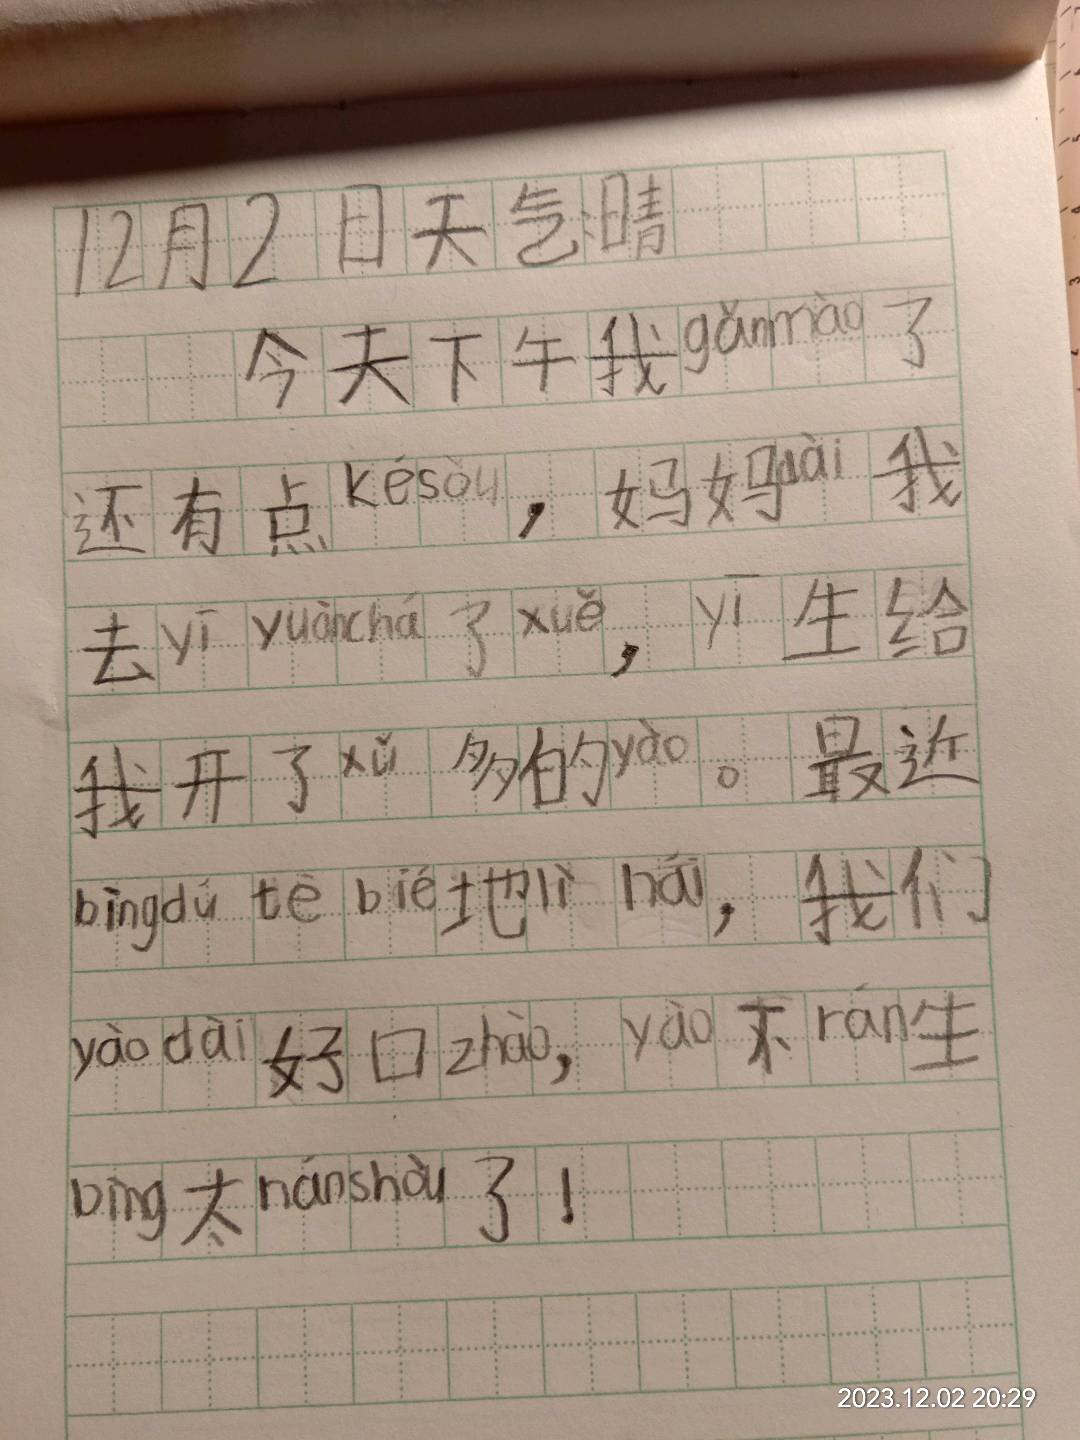 12月2日天气晴
今天下午我gǎnmào了
还有点késòu，妈妈dài我
去yī yuànchá了xuě，yī生给
我开了xǔ多的yào。最近
bìngdú tè bié地lì hái，我们
yào dài好口zhào，yào不rán生
bìng太nánshòu了！
2023.12.02 20:29